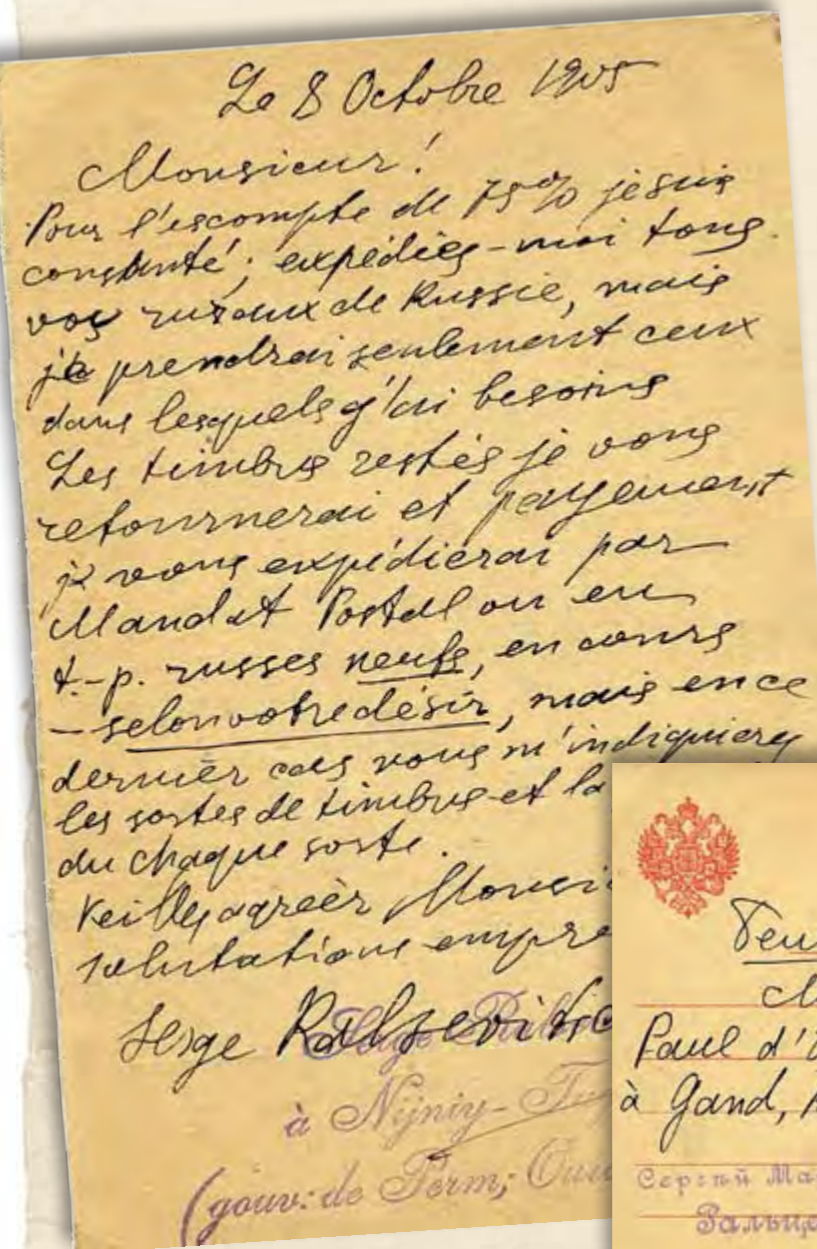 Le 8 Octobre 1905
Monsieur!
Pour l'escompte de 75% je suis
; expédiés-moi tous
vos ruraux de Russie, mais
je prendrai seulement ceux
dans lesquels j'ai besoins
Les timbres restés je vous
retournerai et payement
je vous expédierai par
Mandat Postal ou en
t.-p. russes neufs, en cours
- selon votre désir, mais en ce
dernier cas vous m'indiquierez
les sortes de timbres et la
du chaque sorte.
Veillez agreèr
salutations
Serge
à Nijniy-
(gouv: de Perm;
Paul d'
à Gand,
Сергѣй